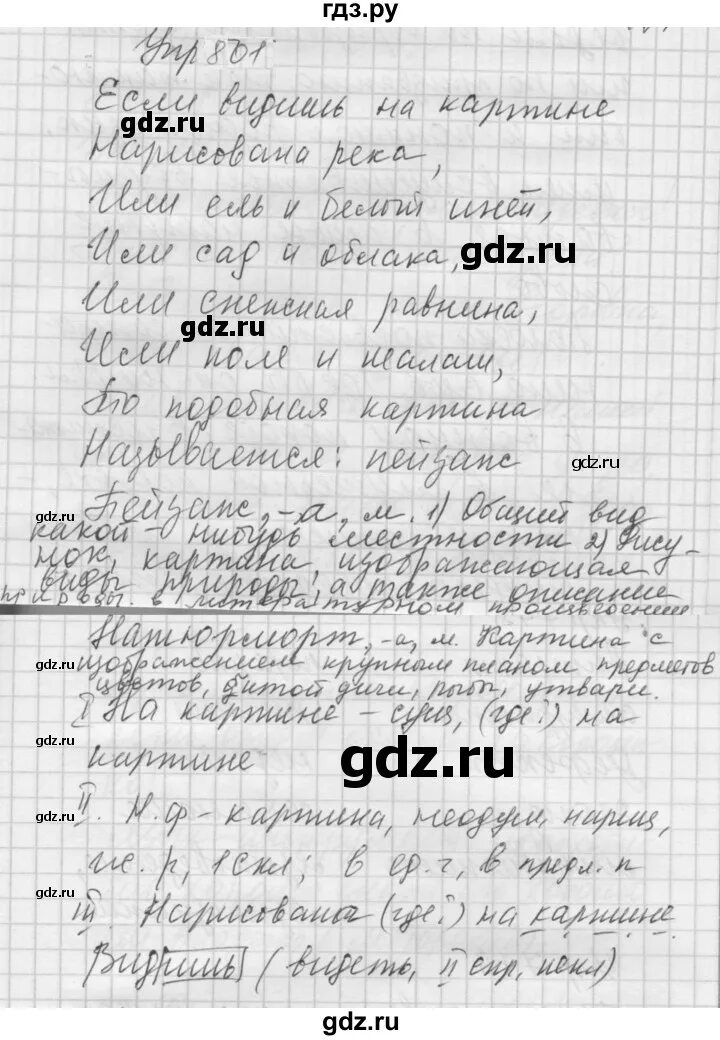 гдз.ру
Упр 801
Если видишь на картине
gdz.ru
Нарисована река,
Или ель и белый иней,
Или сад и облака,
gdz.ru
Или снежная равнина,
gdz.ru
Или поле и шалаш,
То подобная картина
Называется: пейзаж
gdz.ru
gdz.ru
Пейзаж, -а, м. 1) Общий вид
какой-нибудь местности 2) Рису-
нок, картина, изображающая
виды природы, а также описание
природы в литературном произведении
Натюрморт, -а, м. Картина с
gdz.ru
изображением крупным планом предметов
цветов, битой дичи, рыбы, утвари.
I На картине – сущ, (где?) на
картине
gdz.ru
gdz.ru
II. Н.ф – картина, неодуш, нариц,
ж. р, 1 скл; в ед. ч, в предл. п
gdz.ru
III. Нарисована (где?) на картине
Видишь (видеть, II спр, искл)
gdz.ru
gdz.ru